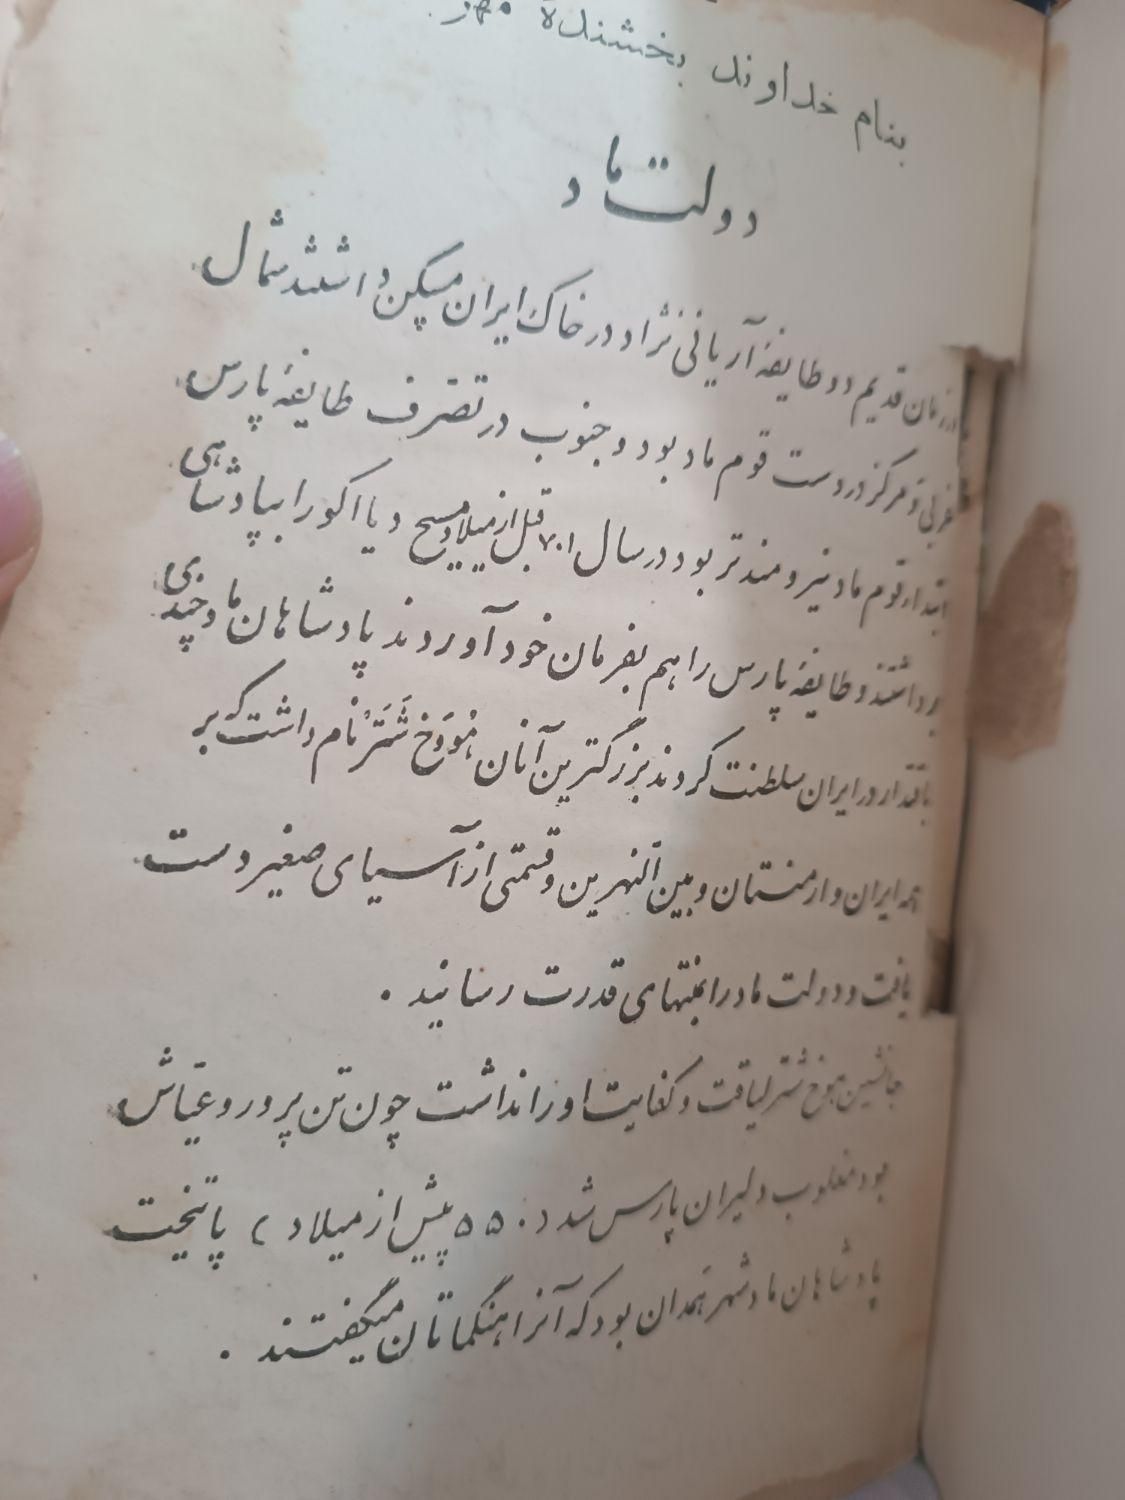 بنام خداوند بخشندهٔ
دولت ماد
در زمان قدیم دو طایفهٔ آریائی نژاد در خاک ایران مسکن داشتند شمال
غربی و مرکز در دست قوم ماد بود و جنوب در تصرّف طایفهٔ پارس
ابتدا قوم ماد نیرومندتر بود در سال ۷۰۱ قبل از میلاد مسیح دیااکو را بپادشاهی
برداشتند و طایفهٔ پارس را هم بفرمان خود آوردند پادشاهان ماد چندی
باقتدار در ایران سلطنت کردند بزرگترین آنان هُوَوَخ شَتَرْ نام داشت که بر
همه ایران و ارمنستان و بین النهرین و قسمتی از آسیای صغیر دست
یافت و دولت ماد را بمنتهای قدرت رسانید .
جانشین هووخ شتر لیاقت و کفایت او را نداشت چون تن پرور و عیّاش
بود مغلوب دلیران پارس شد ( ۵۵۰ پیش از میلاد ) پایتخت
پادشاهان ماد شهر همدان بود که آنرا هنگماتان میگفتند .